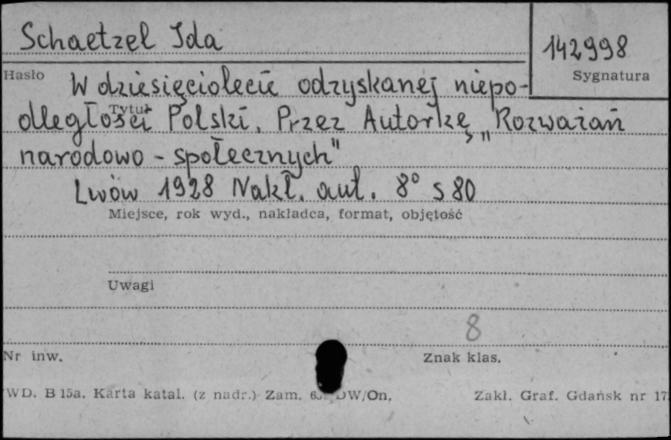 Schaetzel Ida
142998
Hasło
Sygnatura
W dziesięciolecie odzyskanej niepo-
Tytuł
dległości Polski. Przez Autorkę „Rozważań
narodowo - społecznych"
Lwów 1928 Nakł. aut. 8° s 80
Miejsce, rok wyd., nakładca, format, objętość
Uwagi
8
Nr inw.
Znak klas.
WD. B 15a. Karta katal. (z nadr.) Zam. DW/On,
Zakł. Graf. Gdańsk nr 17